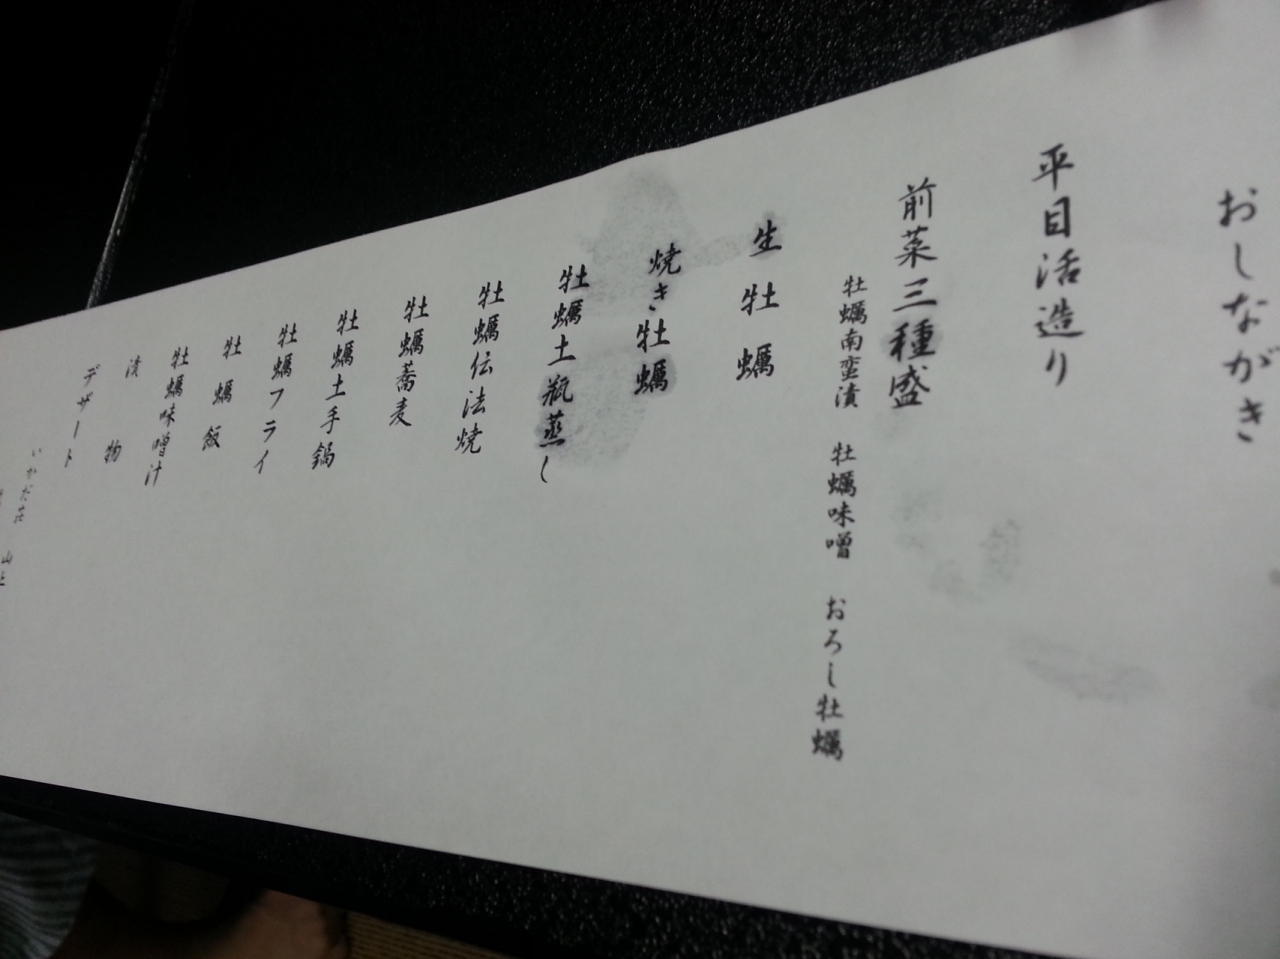 おしながき
平目活造り
前菜三種盛
牡蠣南蛮漬 牡蠣味噌 おろし牡蠣
生牡蠣
焼き牡蠣
牡蠣土瓶蒸し
牡蠣伝法焼
牡蠣蕎麦
牡蠣土手鍋
牡蠣フライ
牡蠣飯
牡蠣味噌汁
漬物
デザート
いかだ荘 山上